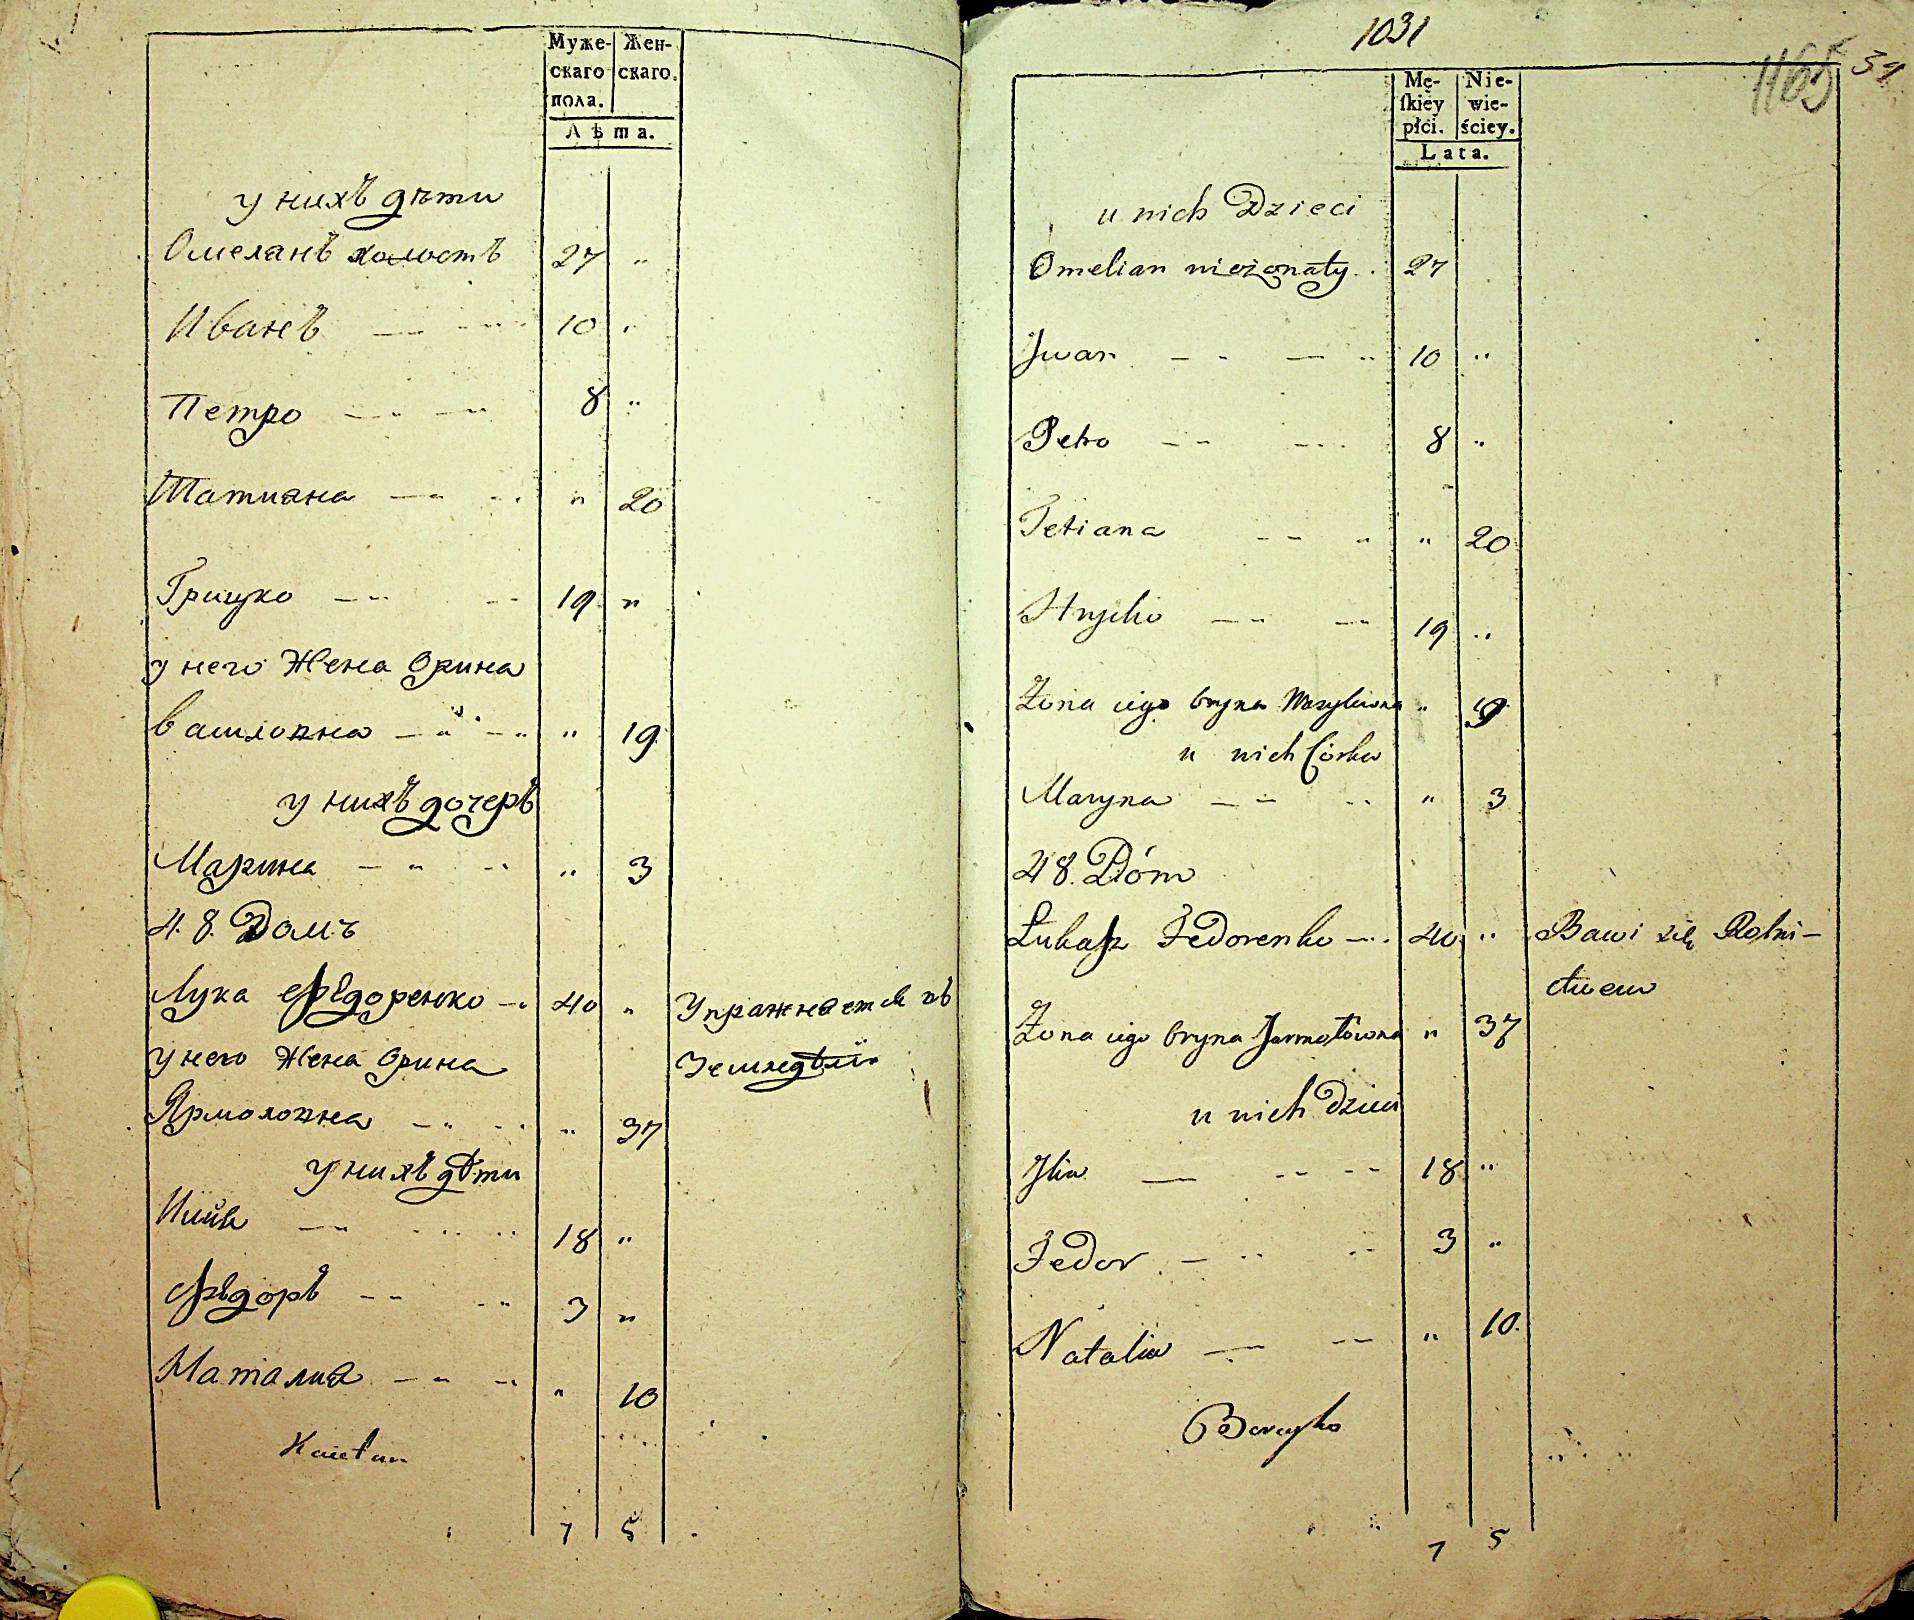 Муже- Жен-
скаго скаго.
пола.
Лѣта.
у нихъ дѣти
Омеланъ холостъ 27 "
Иванъ 10 "
Петро 8 "
Татиана " 20
Грицко 19 "
у него Жена Орина
" 19
у нихъ дочеръ
Марина " 3
4.8. Домъ
Лука Федоренко 40 " Упражнается въ
у него Жена Орина Земледѣлїи
Ярмоловна " 37
у нихъ дѣти
Илия 18 "
Федоръ 3 "
Наталия " 10
Kaietan
7 5
1031
1165 31
Mę- Nie-
ſkiéy wie-
płci. ściey.
Lata.
u nich Dzieci
Omelian nieżonaty 27
Jwan 10 "
Petro 8 "
Tetiana " 20
Hrycko 19 "
Żona iego Oryna Wasylowna " 19
u nich Córka
Maryna " 3
48. Dóm
Łukasz Fedorenko 40 " Bawi się Rolni-
ctwem
Żona iego Oryna Jarmołowna " 37
u nich Dzieci
Jlia 18 "
Fedor 3 "
Natalia " 10.
7 5